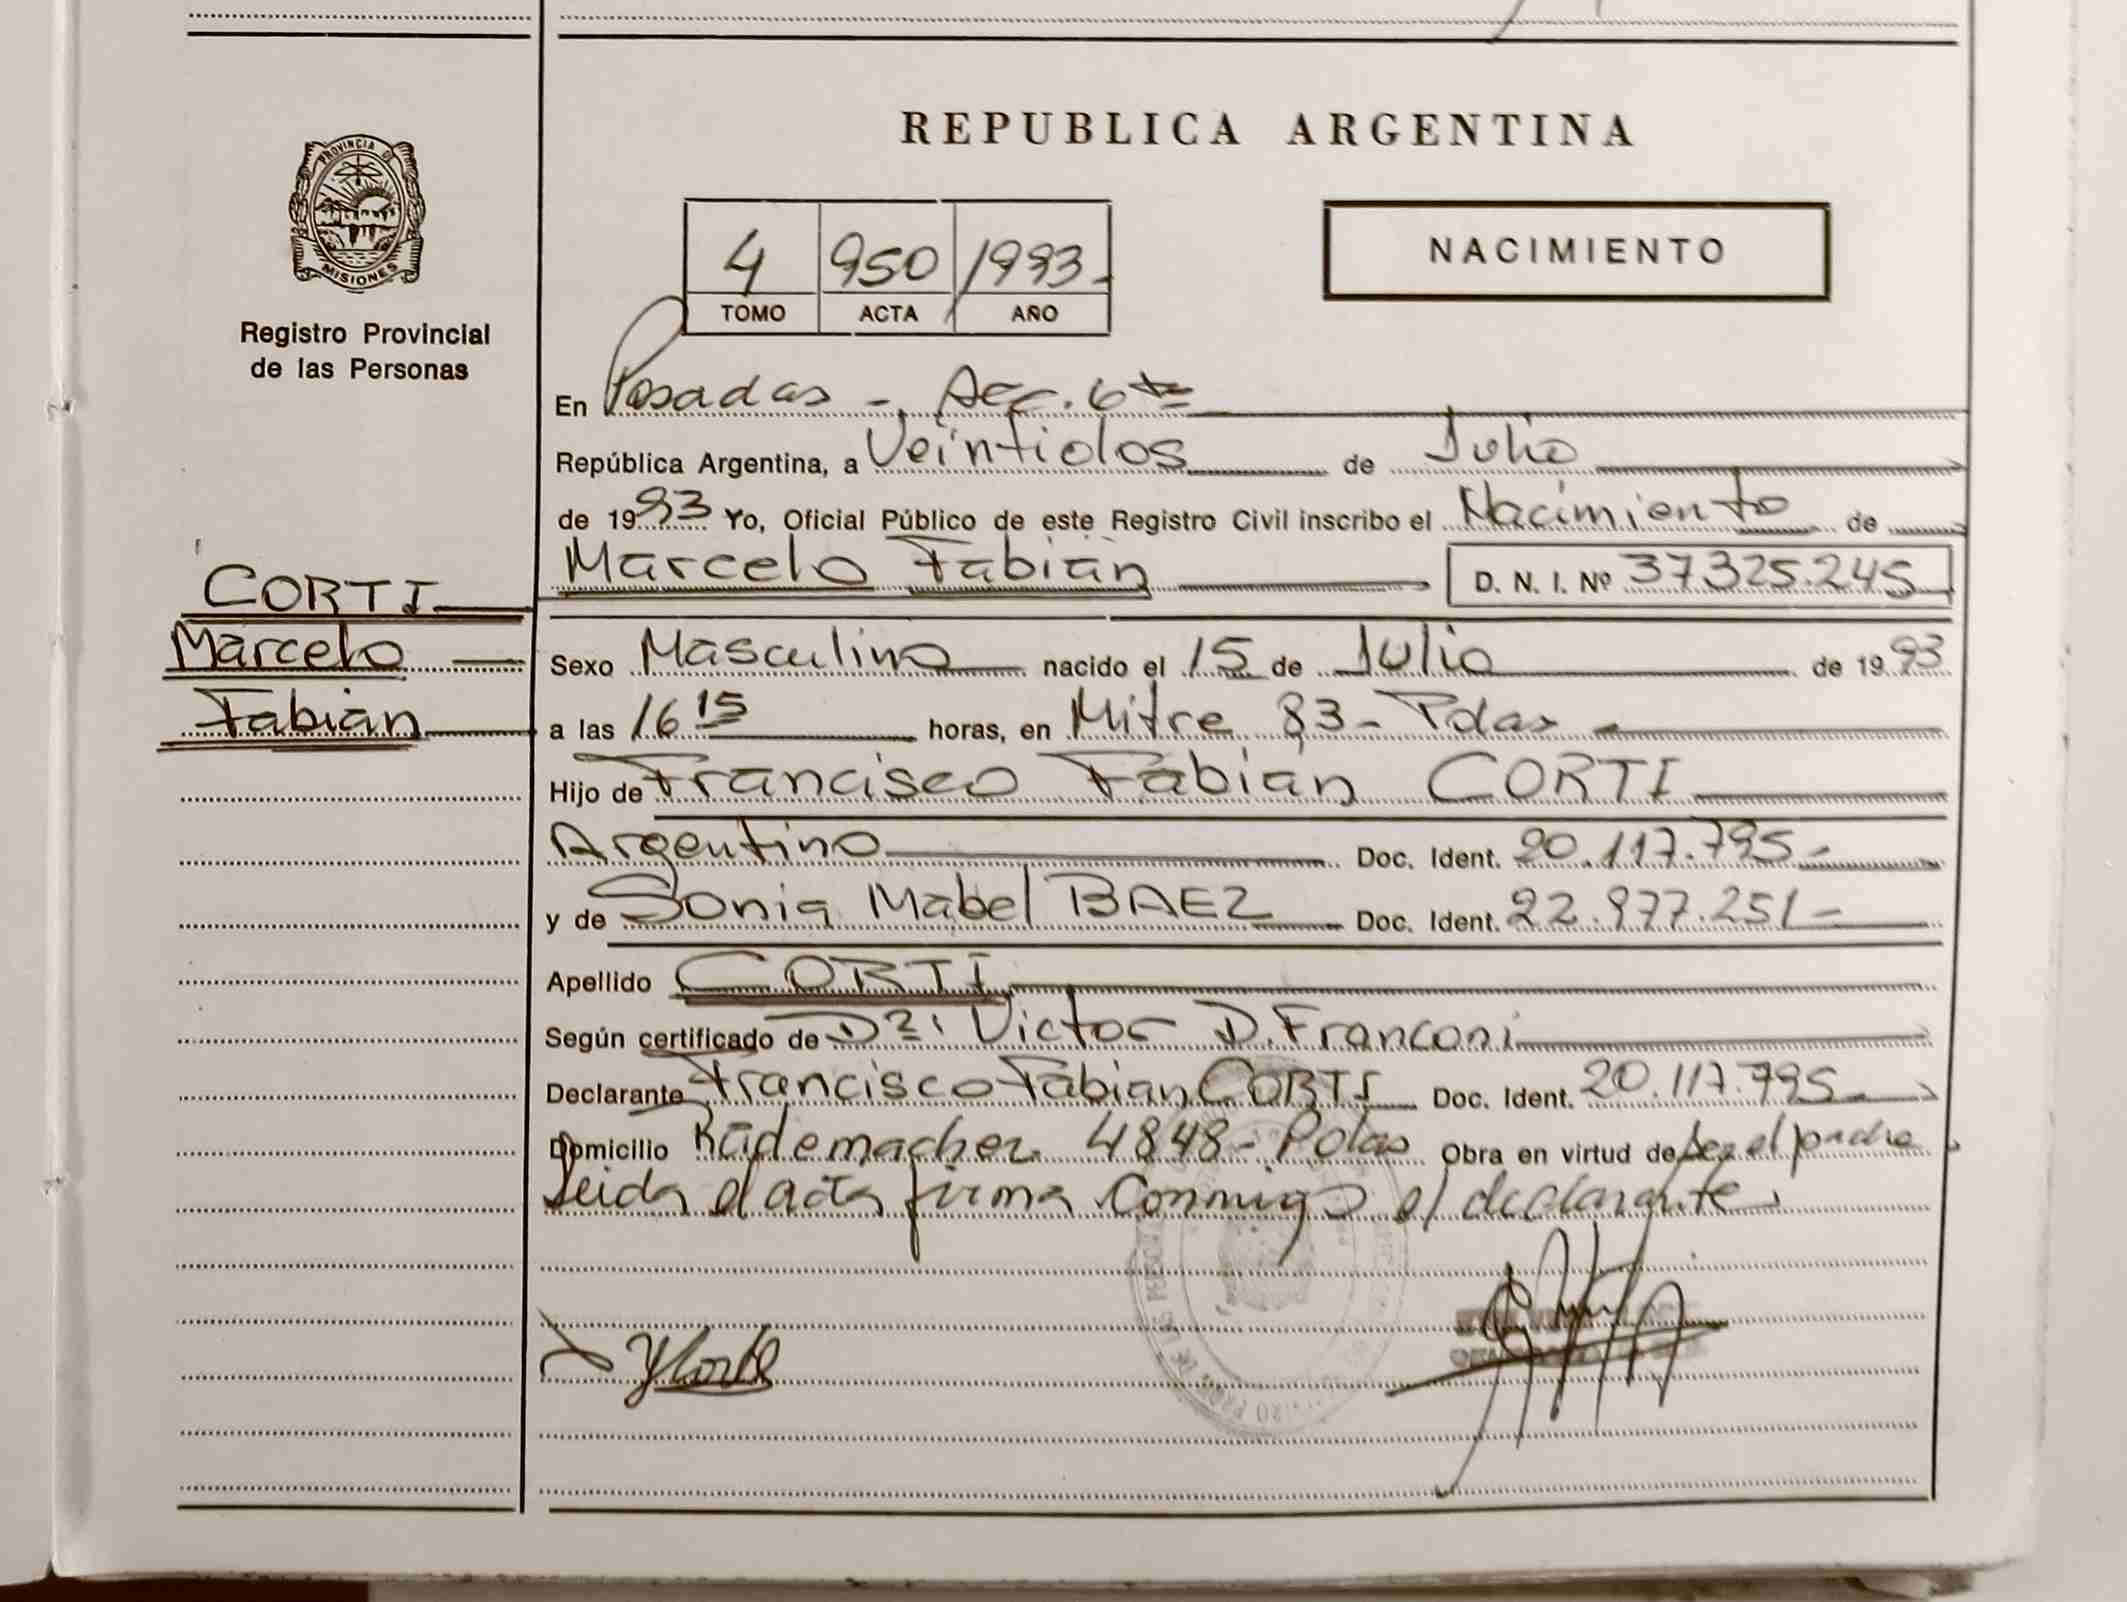 PROVINCIA DE
MISIONES
Registro Provincial
de las Personas
CORTI
Marcelo
Fabián
REPUBLICA ARGENTINA
4 950 1993
TOMO ACTA AÑO
NACIMIENTO
En Posadas - Sec. 6ta
República Argentina, a Veintidos de Julio
de 1993 Yo, Oficial Público de este Registro Civil inscribo el Nacimiento de
Marcelo Fabián D. N. I. Nº 37.325.245
Sexo Masculino nacido el 15 de Julio de 1993
a las 16 15 horas, en Mitre 83 - Pdas
Hijo de Francisco Fabián CORTI
Argentino Doc. Ident. 20.117.795-
y de Sonia Mabel BAEZ Doc. Ident. 22.977.251-
Apellido CORTI
Según certificado de Victor D. Franconi
Declarante Francisco Fabian CORTI Doc. Ident. 20.117.795-
Domicilio Rademacher 4848- Pdas Obra en virtud de Ser el padre
Leida el acta firma Conmigo el declarante.